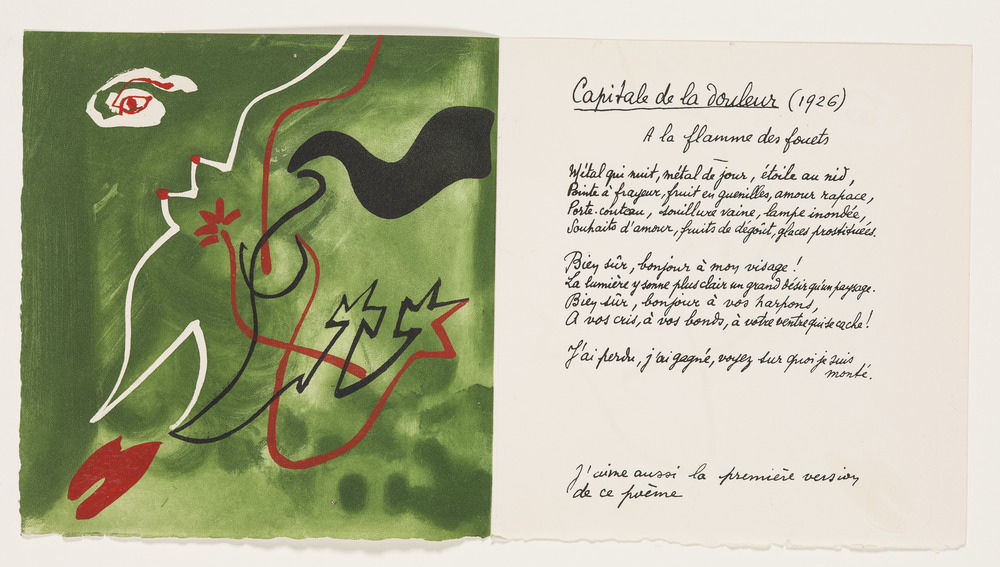 Capitale de la douleur (1926)
A la flamme des fouets
Métal qui nuit, métal de jour, étoile au nid,
Pointe à frayeur, fruit en guenilles, amour rapace,
Porte-couteau, souillure vaine, lampe inondée,
Souhaits d'amour, fruits de dégoût, glaces prostituées.
Bien sûr, bonjour à mon visage !
La lumière y sonne plus clair un grand désir qu'un paysage.
Bien sûr, bonjour à vos harpons,
A vos cris, à vos bonds, à votre ventre qui se cache !
J'ai perdu, j'ai gagné, voyez sur quoi je suis
monté.
J'aime aussi la première version
de ce poème